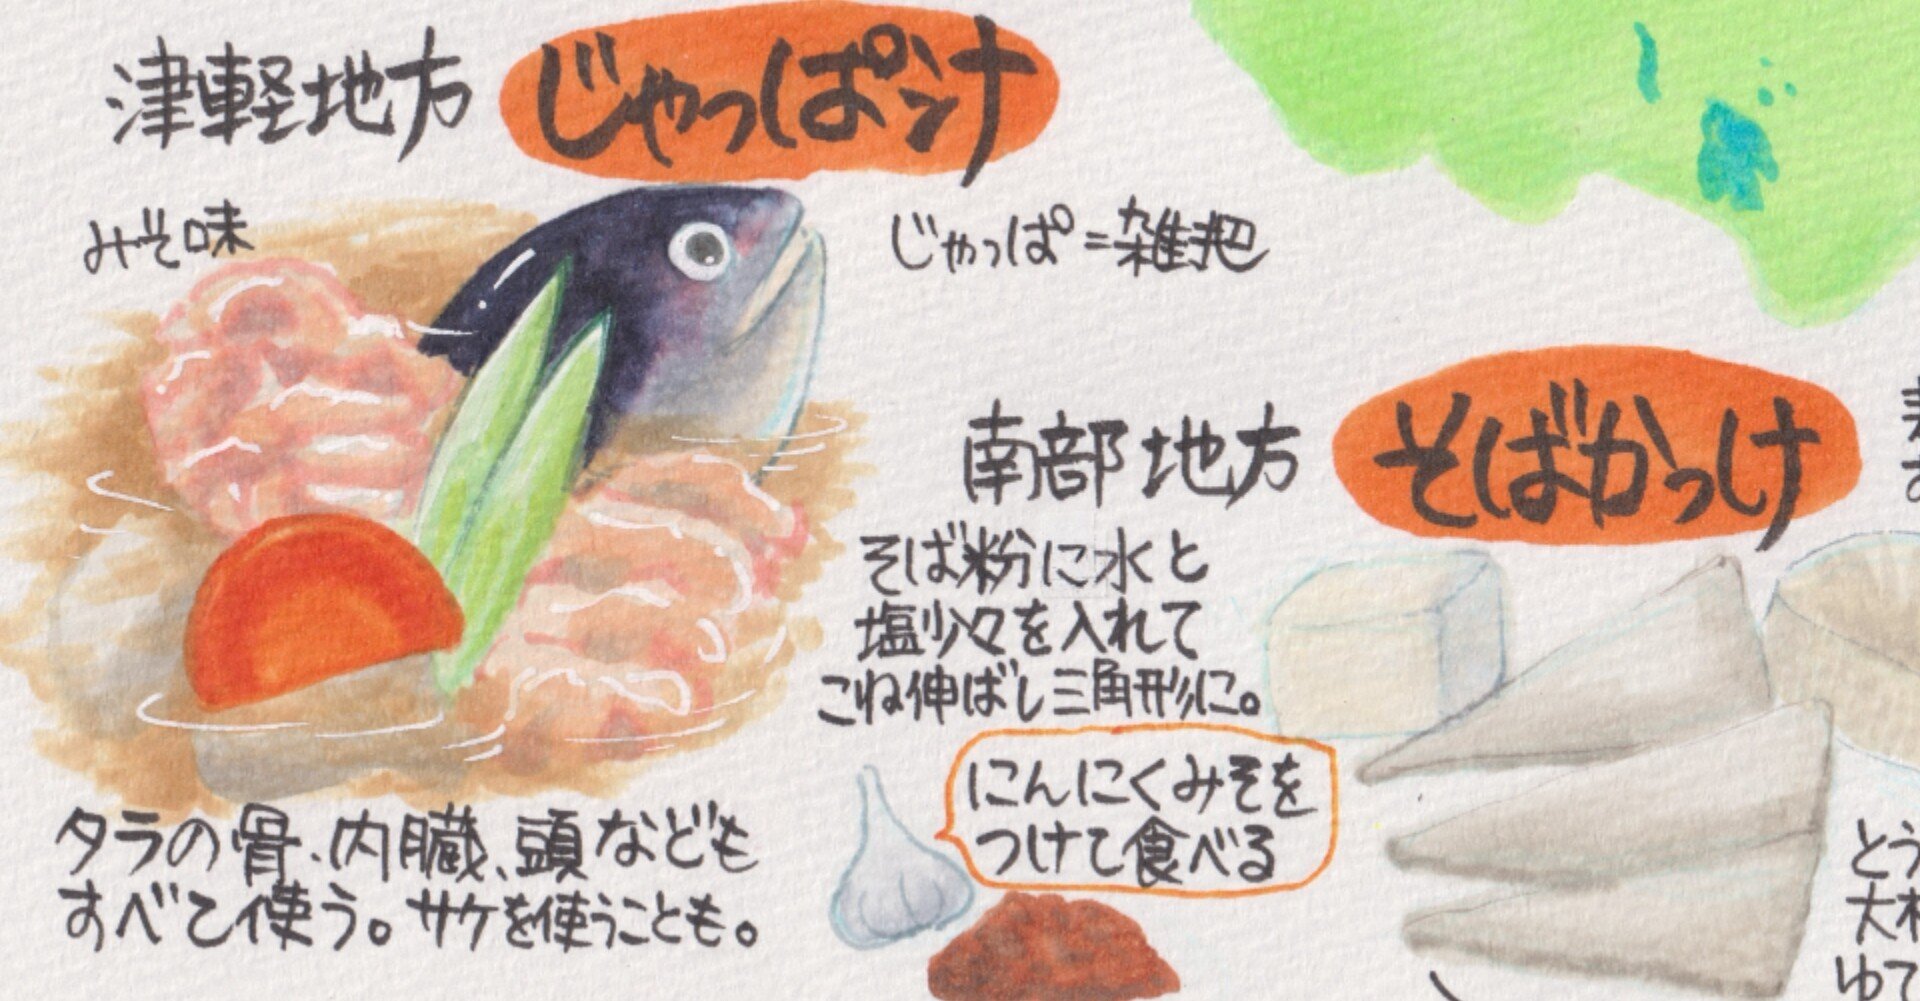 津軽地方 じゃっぱ汁
みそ味
じゃっぱ=雑把
タラの骨、内臓、頭なども
すべて使う。サケを使うことも。
南部地方 そばかっけ
そば粉に水と
塩少々を入れて
こね伸ばし三角形に。
にんにくみそを
つけて食べる
とう
大根
ゆで